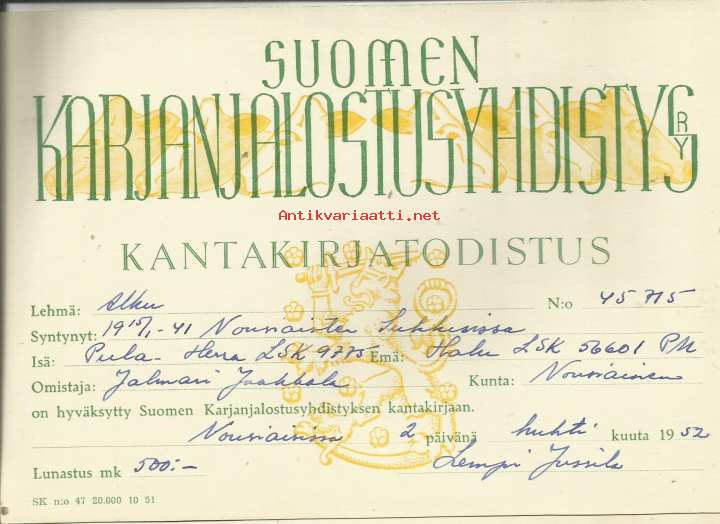 SUOMEN
KARJANJALOSTUSYHDISTYS RY
Antikvariaatti.net
KANTAKIRJATODISTUS
Lehmä: Alku N:o 45715
Syntynyt: 19 15/1 -41 Nousiaisten
Isä: Pula-Herra LSK 9775 Emä: Halu LSK 56601 PM
Omistaja: Jalmari Jaakkola Kunta: Nousiainen
on hyväksytty Suomen Karjanjalostusyhdistyksen kantakirjaan.
Nousiaisissa 2 päivänä huhti kuuta 1952
Lunastus mk 500:- Lempi Jussila
SK n:o 47 20.000 10 51